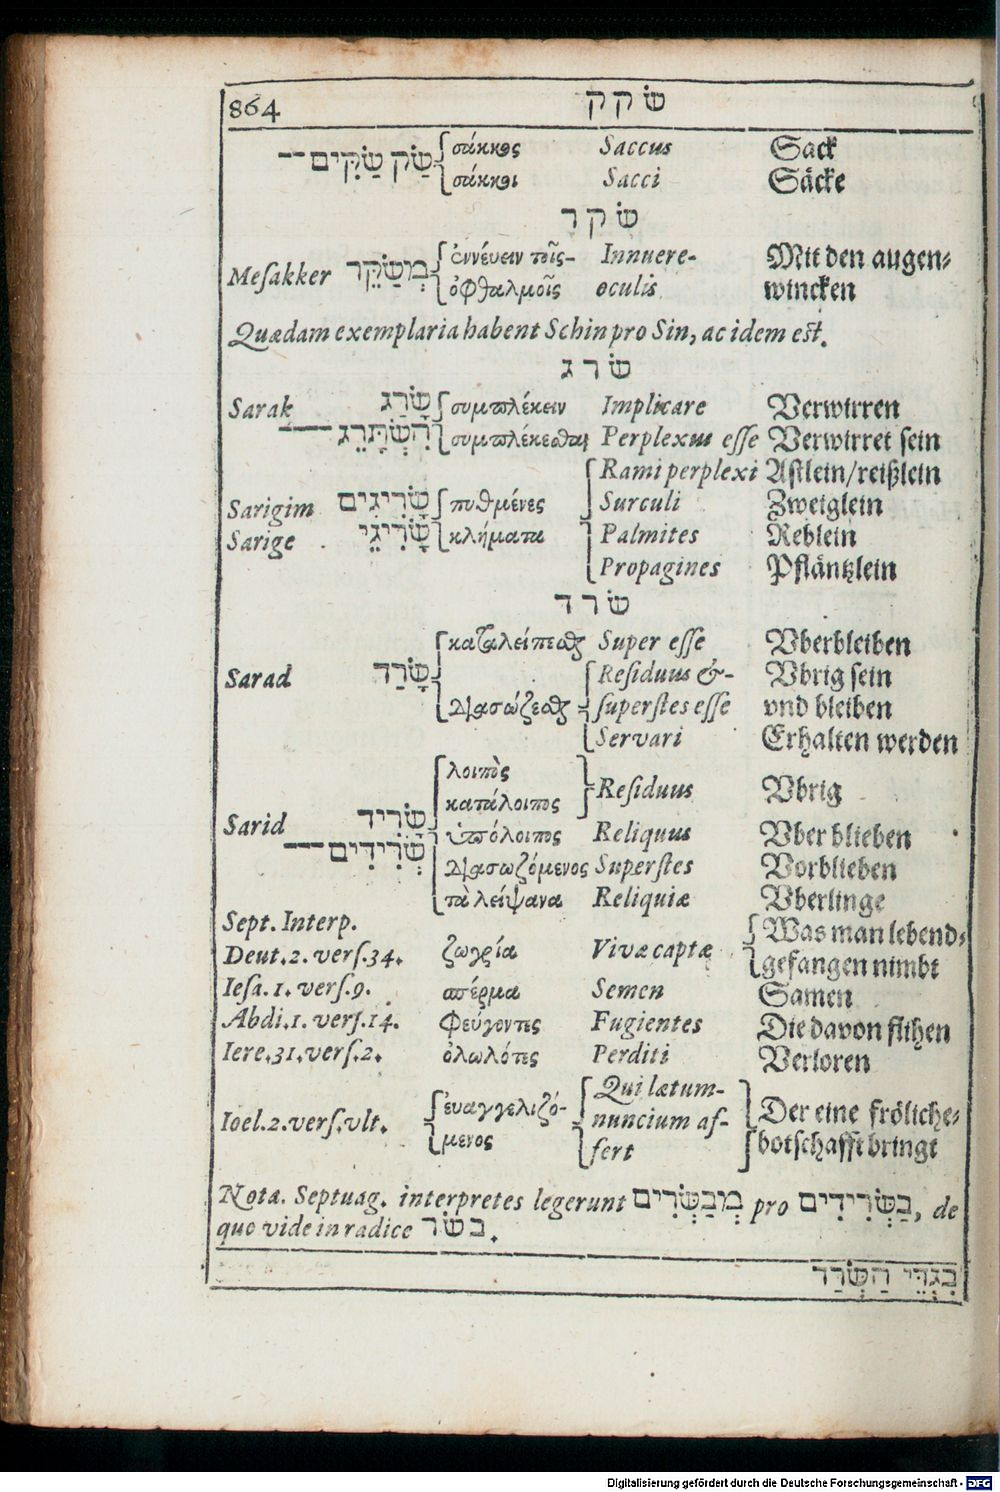 864 שׂקק
שַׂק שַׂקִּים-- σάκκος Saccus Sack
σάκκοι Sacci Säcke
שׂקר
Meſakker מְשַׂקֵּר ἐννεύειν τοῖς- Innuere- Mit den augen-
ὀφθαλμοῖς oculis wincken
Quædam exemplaria habent Schin pro Sin, ac idem eſt.
שׂרג
Sarak שָׂרַג συμπλέκειν Implicare Verwirren
---הִשְׂתָּרֵג συμπλέκεσθαι Perplexus eſſe Verwirret sein
Rami perplexi Aſtlein/reißlein
Sarigim שָׂרִיגִים πυθμένες Surculi Zweiglein
Sarige שָׂרִיגֵי κλήματα Palmites Reblein
Propagines Pfläntzlein
שׂרד
καταλείπεσθαι Super eſſe Vberbleiben
Sarad שָׂרַד Reſiduus &- Vbrig sein
διασώζεσθαι ſuperſtes eſſe vnd bleiben
Servari Erhalten werden
λοιπὸς
καταλοιπος Reſiduus Vbrig
Sarid שָׂרִיד ὑπόλοιπος Reliquus Vber blieben
שְׂרִידִים--- διασωζόμενος Superſtes Vorblieben
τὰ λείψανα Reliquiæ Vberlinge
Sept. Interp.
Deut.2. verſ.34. ζωγρία Vivæ captæ Was man lebend-
gefangen nimbt
Ieſa.1. verſ.9. σπέρμα Semen Samen
Abdi.1. verſ.14. φεύγοντες Fugientes Die davon flihen
Iere.31.verſ.2. ὀλωλότες Perditi Verloren
Ioel.2.verſ.vlt. ἐυαγγελιζό- Qui lætum- Der eine fröliche-
μενος nuncium af- botschafft bringt
fert
Nota. Septuag. interpretes legerunt מְבַשְּׂרִים pro בַּשְּׂרִידִים, de
quo vide in radice בשׂר.
בִּגְדֵי הַשְּׂרַד
Digitalisierung gefördert durch die Deutsche Forschungsgemeinschaft - DFG